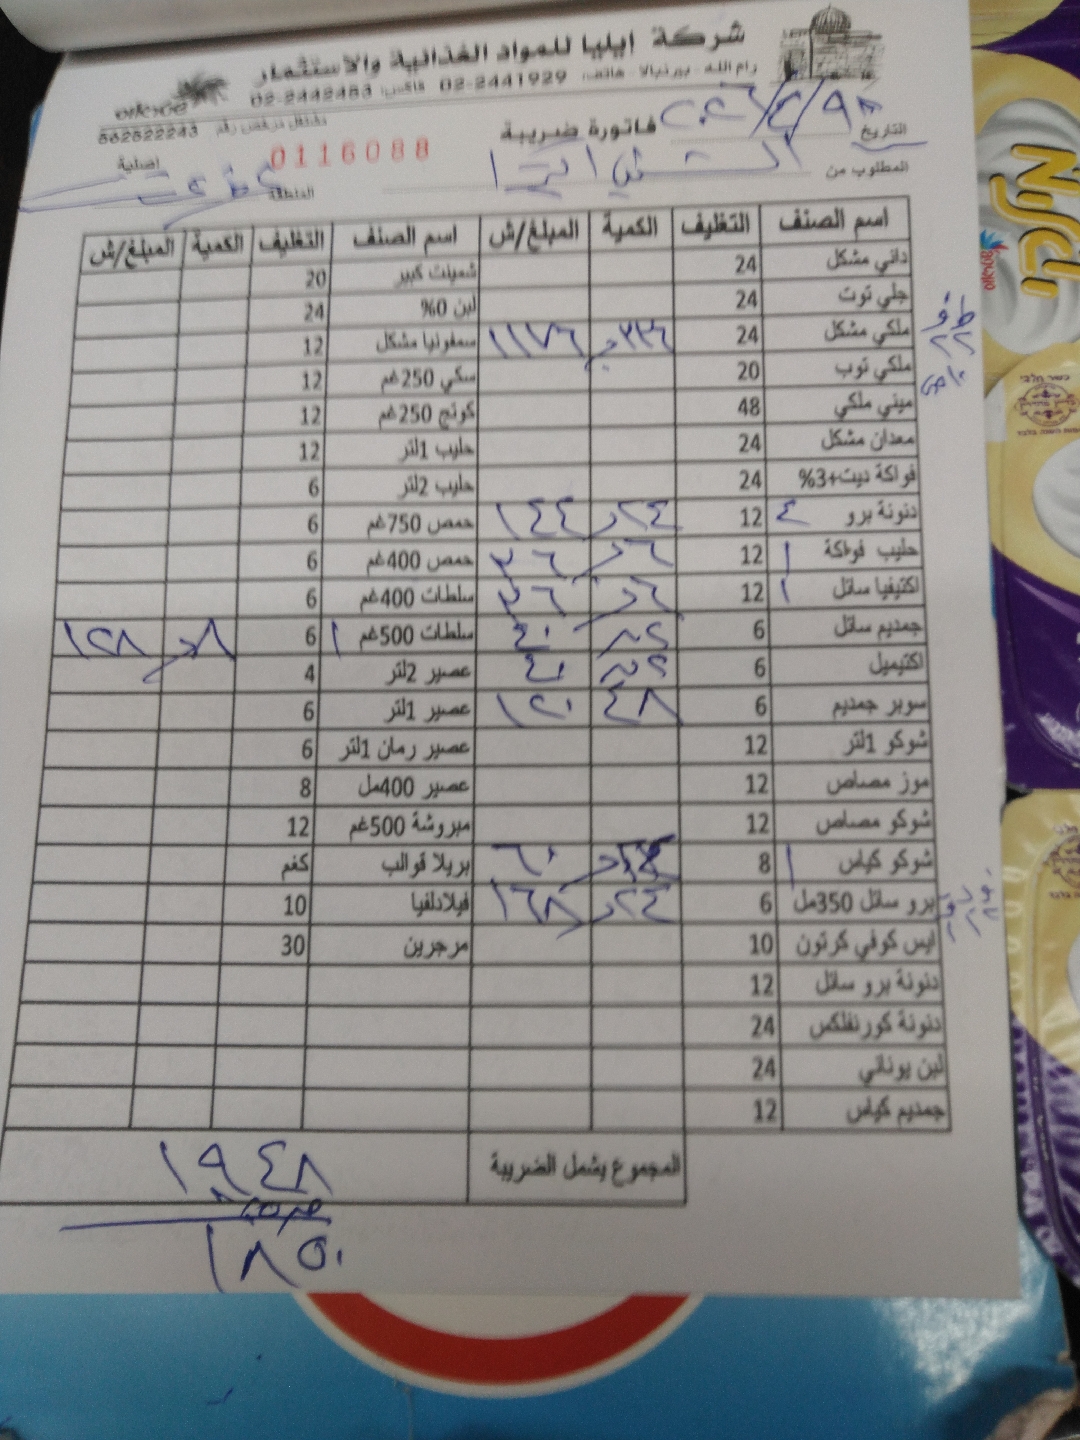 شركة إيليا للمواد الغذائية والاستثمار
رام الله - بيرنبالا - هاتف: 02-2441929 فاكس: 02-2442483
مشتغل مرخص رقم 562522243
فاتورة ضريبة
التاريخ
0116088
أصلية
المطلوب من
المنطقة
اسم الصنف التغليف الكمية المبلغ/ش اسم الصنف التغليف الكمية المبلغ/ش
داني مشكل 24 شمينت كبير 20
جلي توت 24 لبن 0% 24
ملكي مشكل 24 ٣٣٦ ١١٧٦ سمفونيا مشكل 12
ملكي توب 20 سكي 250غم 12
ميني ملكي 48 كوتج 250غم 12
معدان مشكل 24 حليب 1لتر 12
فواكة ديت+3% 24 حليب 2لتر 6
دنونة برو ٤ 12 ٢٤ ١٤٤ حمص 750غم 6
حليب فواكة ١ 12 ٦ ٣٦ حمص 400غم 6
اكتيفيا سائل ١ 12 ٦ ٣٦ سلطات 400غم 6
جمديم سائل 6 ٤٠ سلطات 500غم ١ 6 ١٢٨
اكتيميل 6 ٤٠ عصير 2لتر 4
سوبر جمديم 6 ٤٨ ١٢٠ عصير 1لتر 6
شوكو 1لتر 12 عصير رمان 1لتر 6
موز مصاص 12 عصير 400مل 8
شوكو مصاص 12 مبروشة 500غم 12
شوكو كياس ١ 8 ٦٠ بريلا قوالب كغم
برو سائل 350مل 6 ٢٤ ١٦٨ فيلادلفيا 10
ايس كوفي كرتون 10 مرجرين 30
دنونة برو سائل 12
دنونة كورنفلكس 24
لبن يوناني 24
جمديم كياس 12
المجموع يشمل الضريبة ١٩٤٨
١٨٥٠